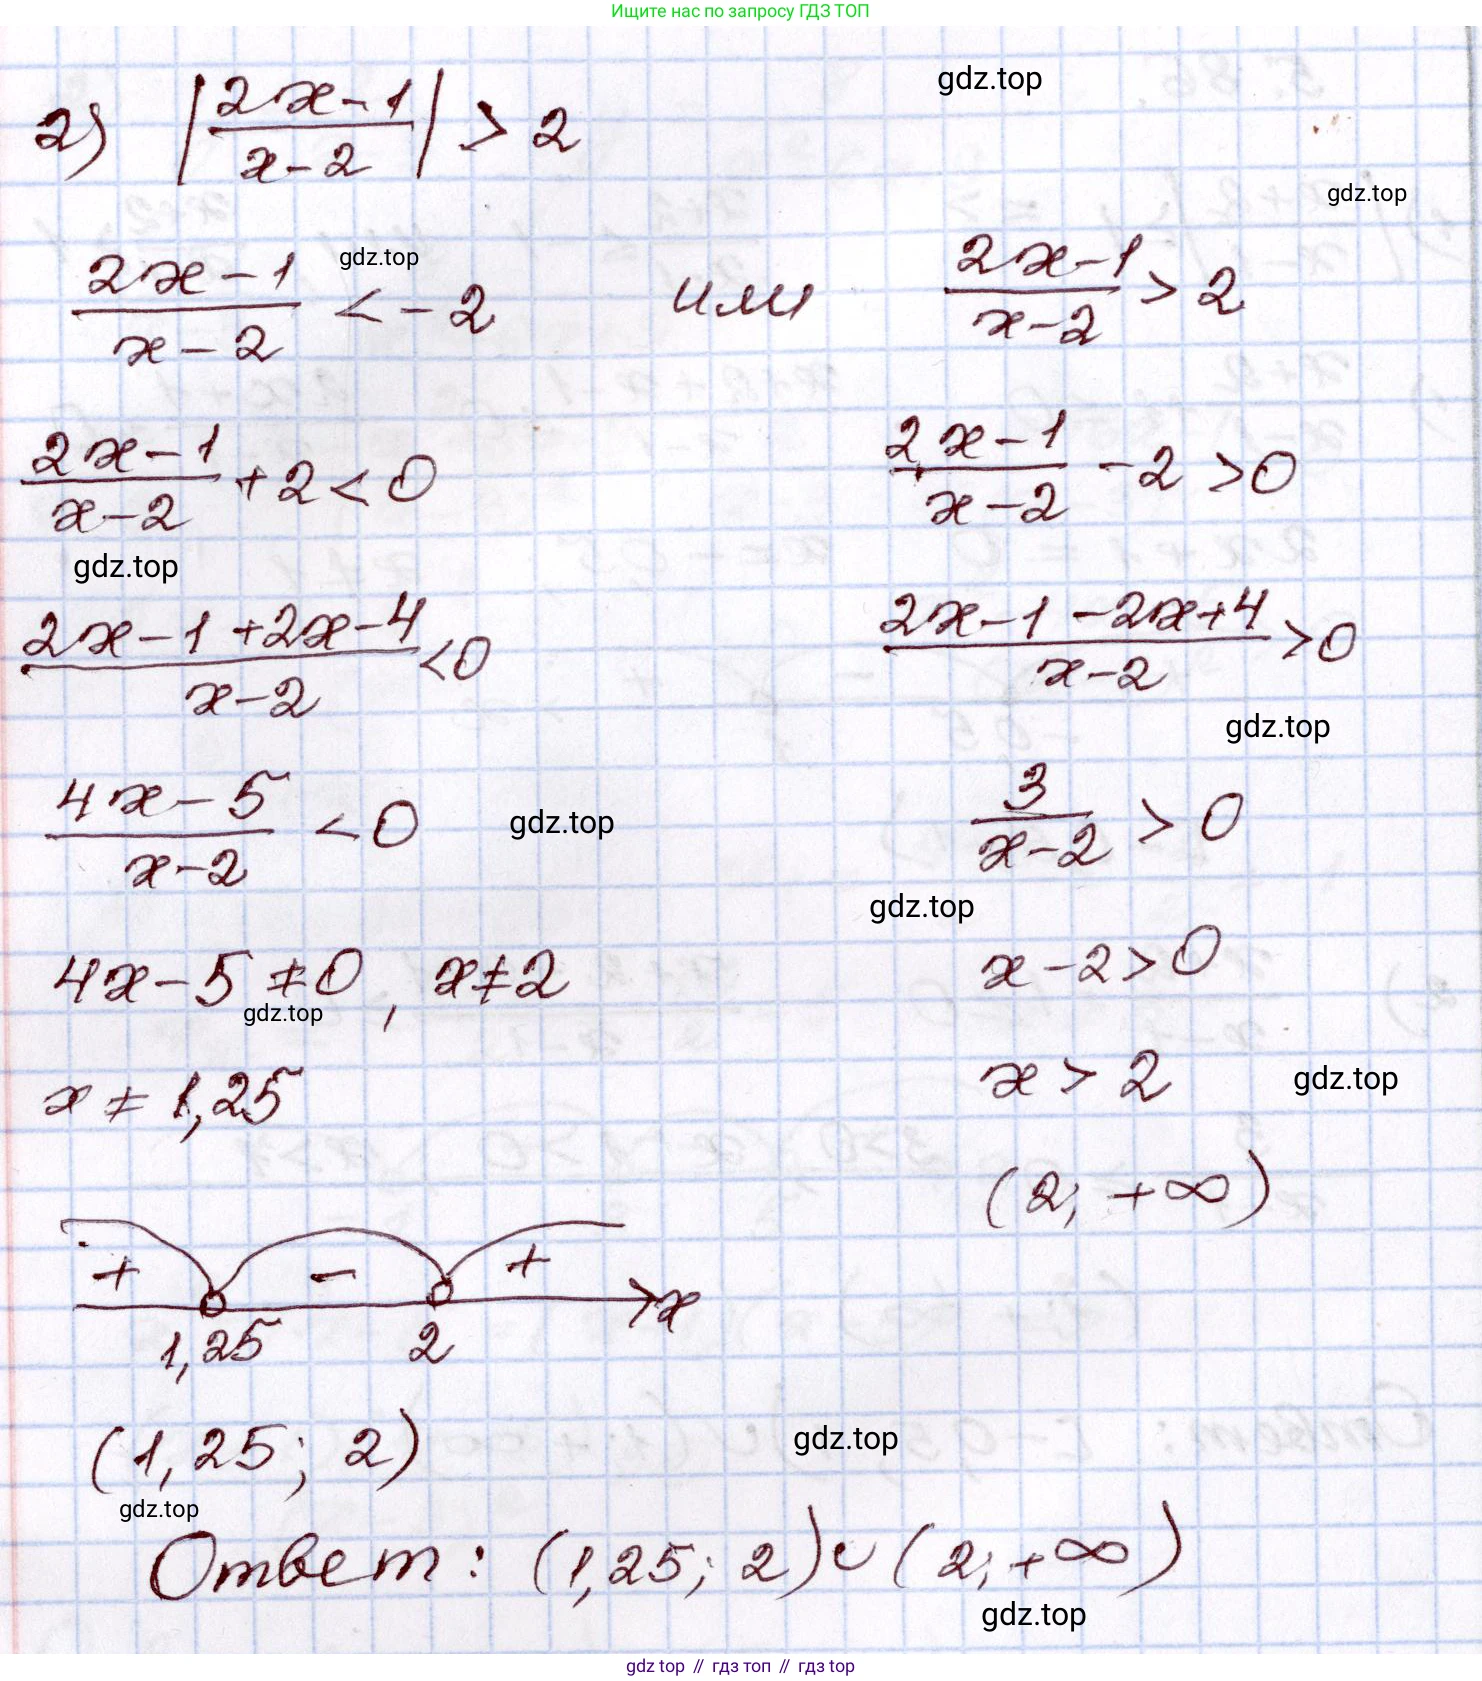 Ищите нас по запросу ГДЗ ТОП
gdz.top
2) |(2x-1)/(x-2)| > 2
gdz.top
gdz.top
(2x-1)/(x-2) < -2 или (2x-1)/(x-2) > 2
(2x-1)/(x-2) + 2 < 0 (2x-1)/(x-2) - 2 > 0
gdz.top
(2x-1+2x-4)/(x-2) < 0 (2x-1-2x+4)/(x-2) > 0
gdz.top
(4x-5)/(x-2) < 0 gdz.top 3/(x-2) > 0
gdz.top
4x-5≠0, x≠2 x-2>0
gdz.top
x ≠ 1,25 x > 2 gdz.top
(2; +∞)
+ - +
1,25 2 x
(1,25; 2) gdz.top
gdz.top
Ответ: (1,25; 2)∪(2; +∞)
gdz.top
gdz top // гдз топ // gdz top